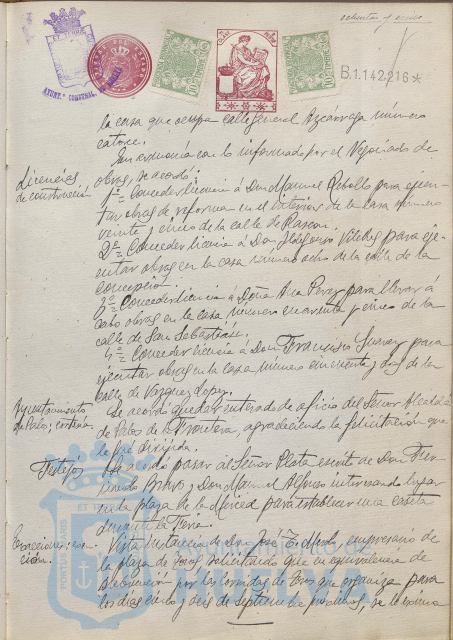 ochenta y cinco
B.1.142,216*
la casa que ocupa calle General Azcárraga número
catorce.
Licencias
de construcción
En armonía con lo informado por el Negociado de
obras, se acordó:
1º = Conceder licencia á Don Manuel Rebollo para ejecu-
tar obras de reforma en el interior de la casa número
veinte y cinco de la calle de Rascon.
2º = Conceder licencia á Don Ildefonso para eje-
cutar obras en la casa número ocho de la calle de la
Concepción.
3º = Conceder licencia á Doña Ana Perez para llevar á
cabo obras en la casa número cincuenta y cinco de la
calle de San Sebastián.
4º = Conceder licencia á Don Francisco para
ejecutar obras en la casa número y dos de la
calle de Vazquez Lopez.
Ayuntamiento
de Palos; cortesía
Se acordó quedar enterado de oficio del Señor Alcalde
de Palos de la Frontera, agradeciendo la felicitación que
le fué dirijida.
Festejos
Se acordó pasar al Señor Plata escrito de Don Fer-
nando Bravo y Don Manuel Alonso interesando lugar
en la plaza de la Merced para establecer una casita
durante la Feria.
Vista instancia de Don José empresario de
la plaza de Toros solicitando que en equivalencia de
subvención por las corridas de toros que organiza para
los días cinco y seis de Septiembre próximos, se le exima